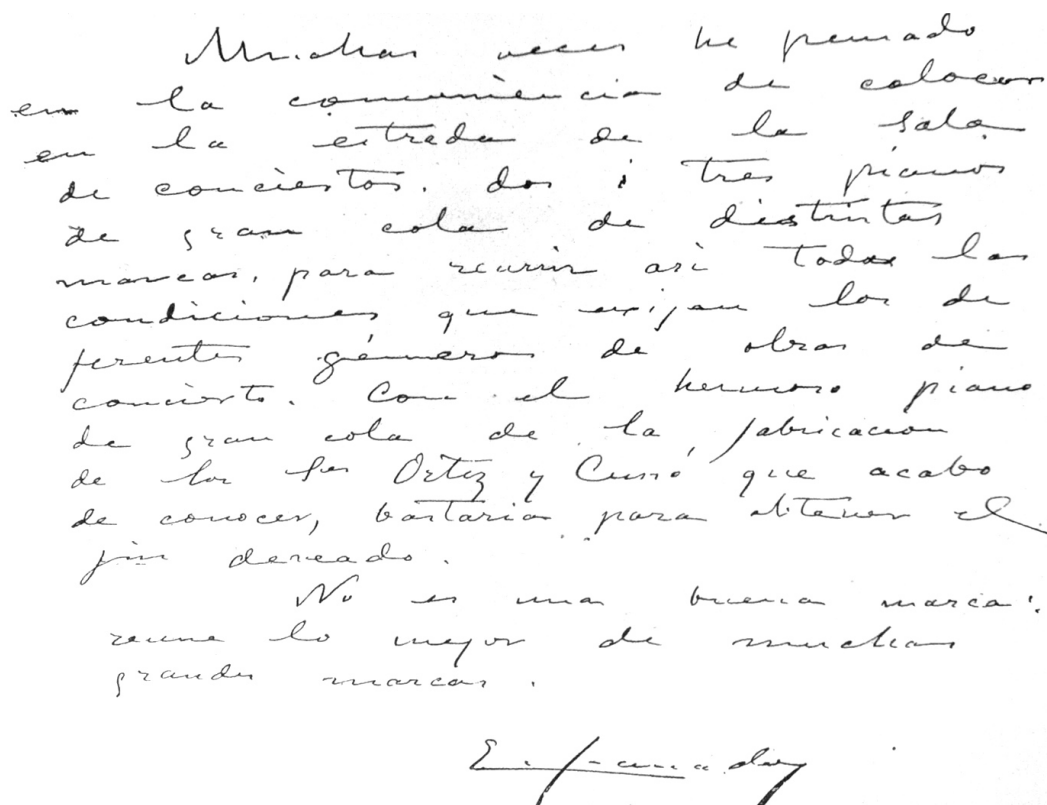 Muchas veces he pensado
en la conveniencia de colocar
en la estrada de la sala
de conciertos. dos ó tres pianos
de gran cola de distintas
marcas, para reunir asi todas las
condiciones que exijan los de
ferentes géneros de obras de
concierto. Con el hermoso piano
de gran cola de la fabricacion
de los Sres Ortiz y Cussó que acabo
de conocer, bastaria para obtener el
fin deseado.
No es una buena marca:
reune lo mejor de muchas
grandes marcas.
E. Granados